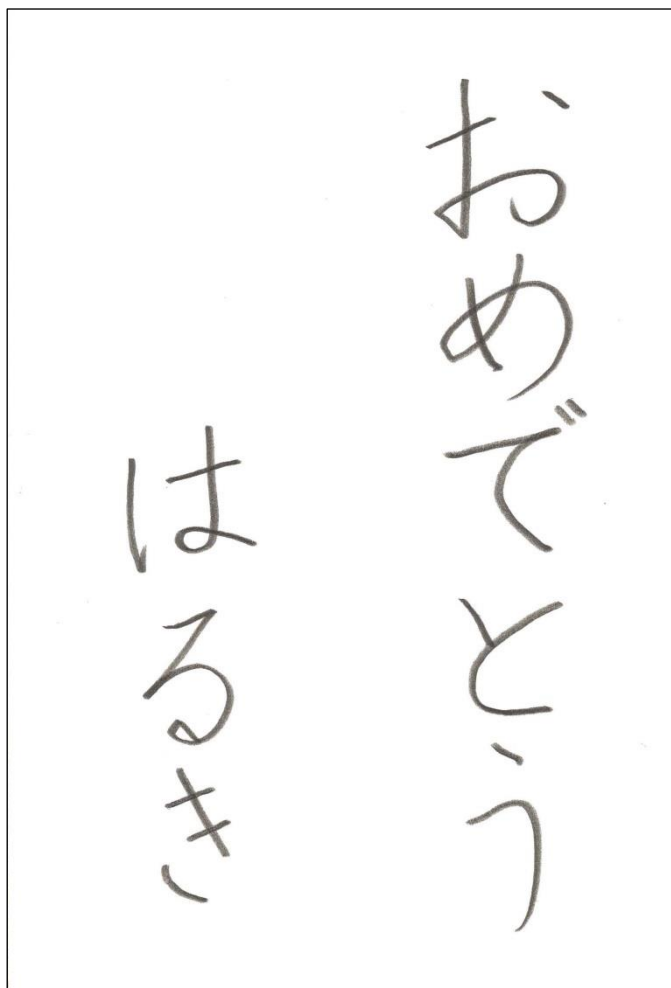 おめでとう
はるき